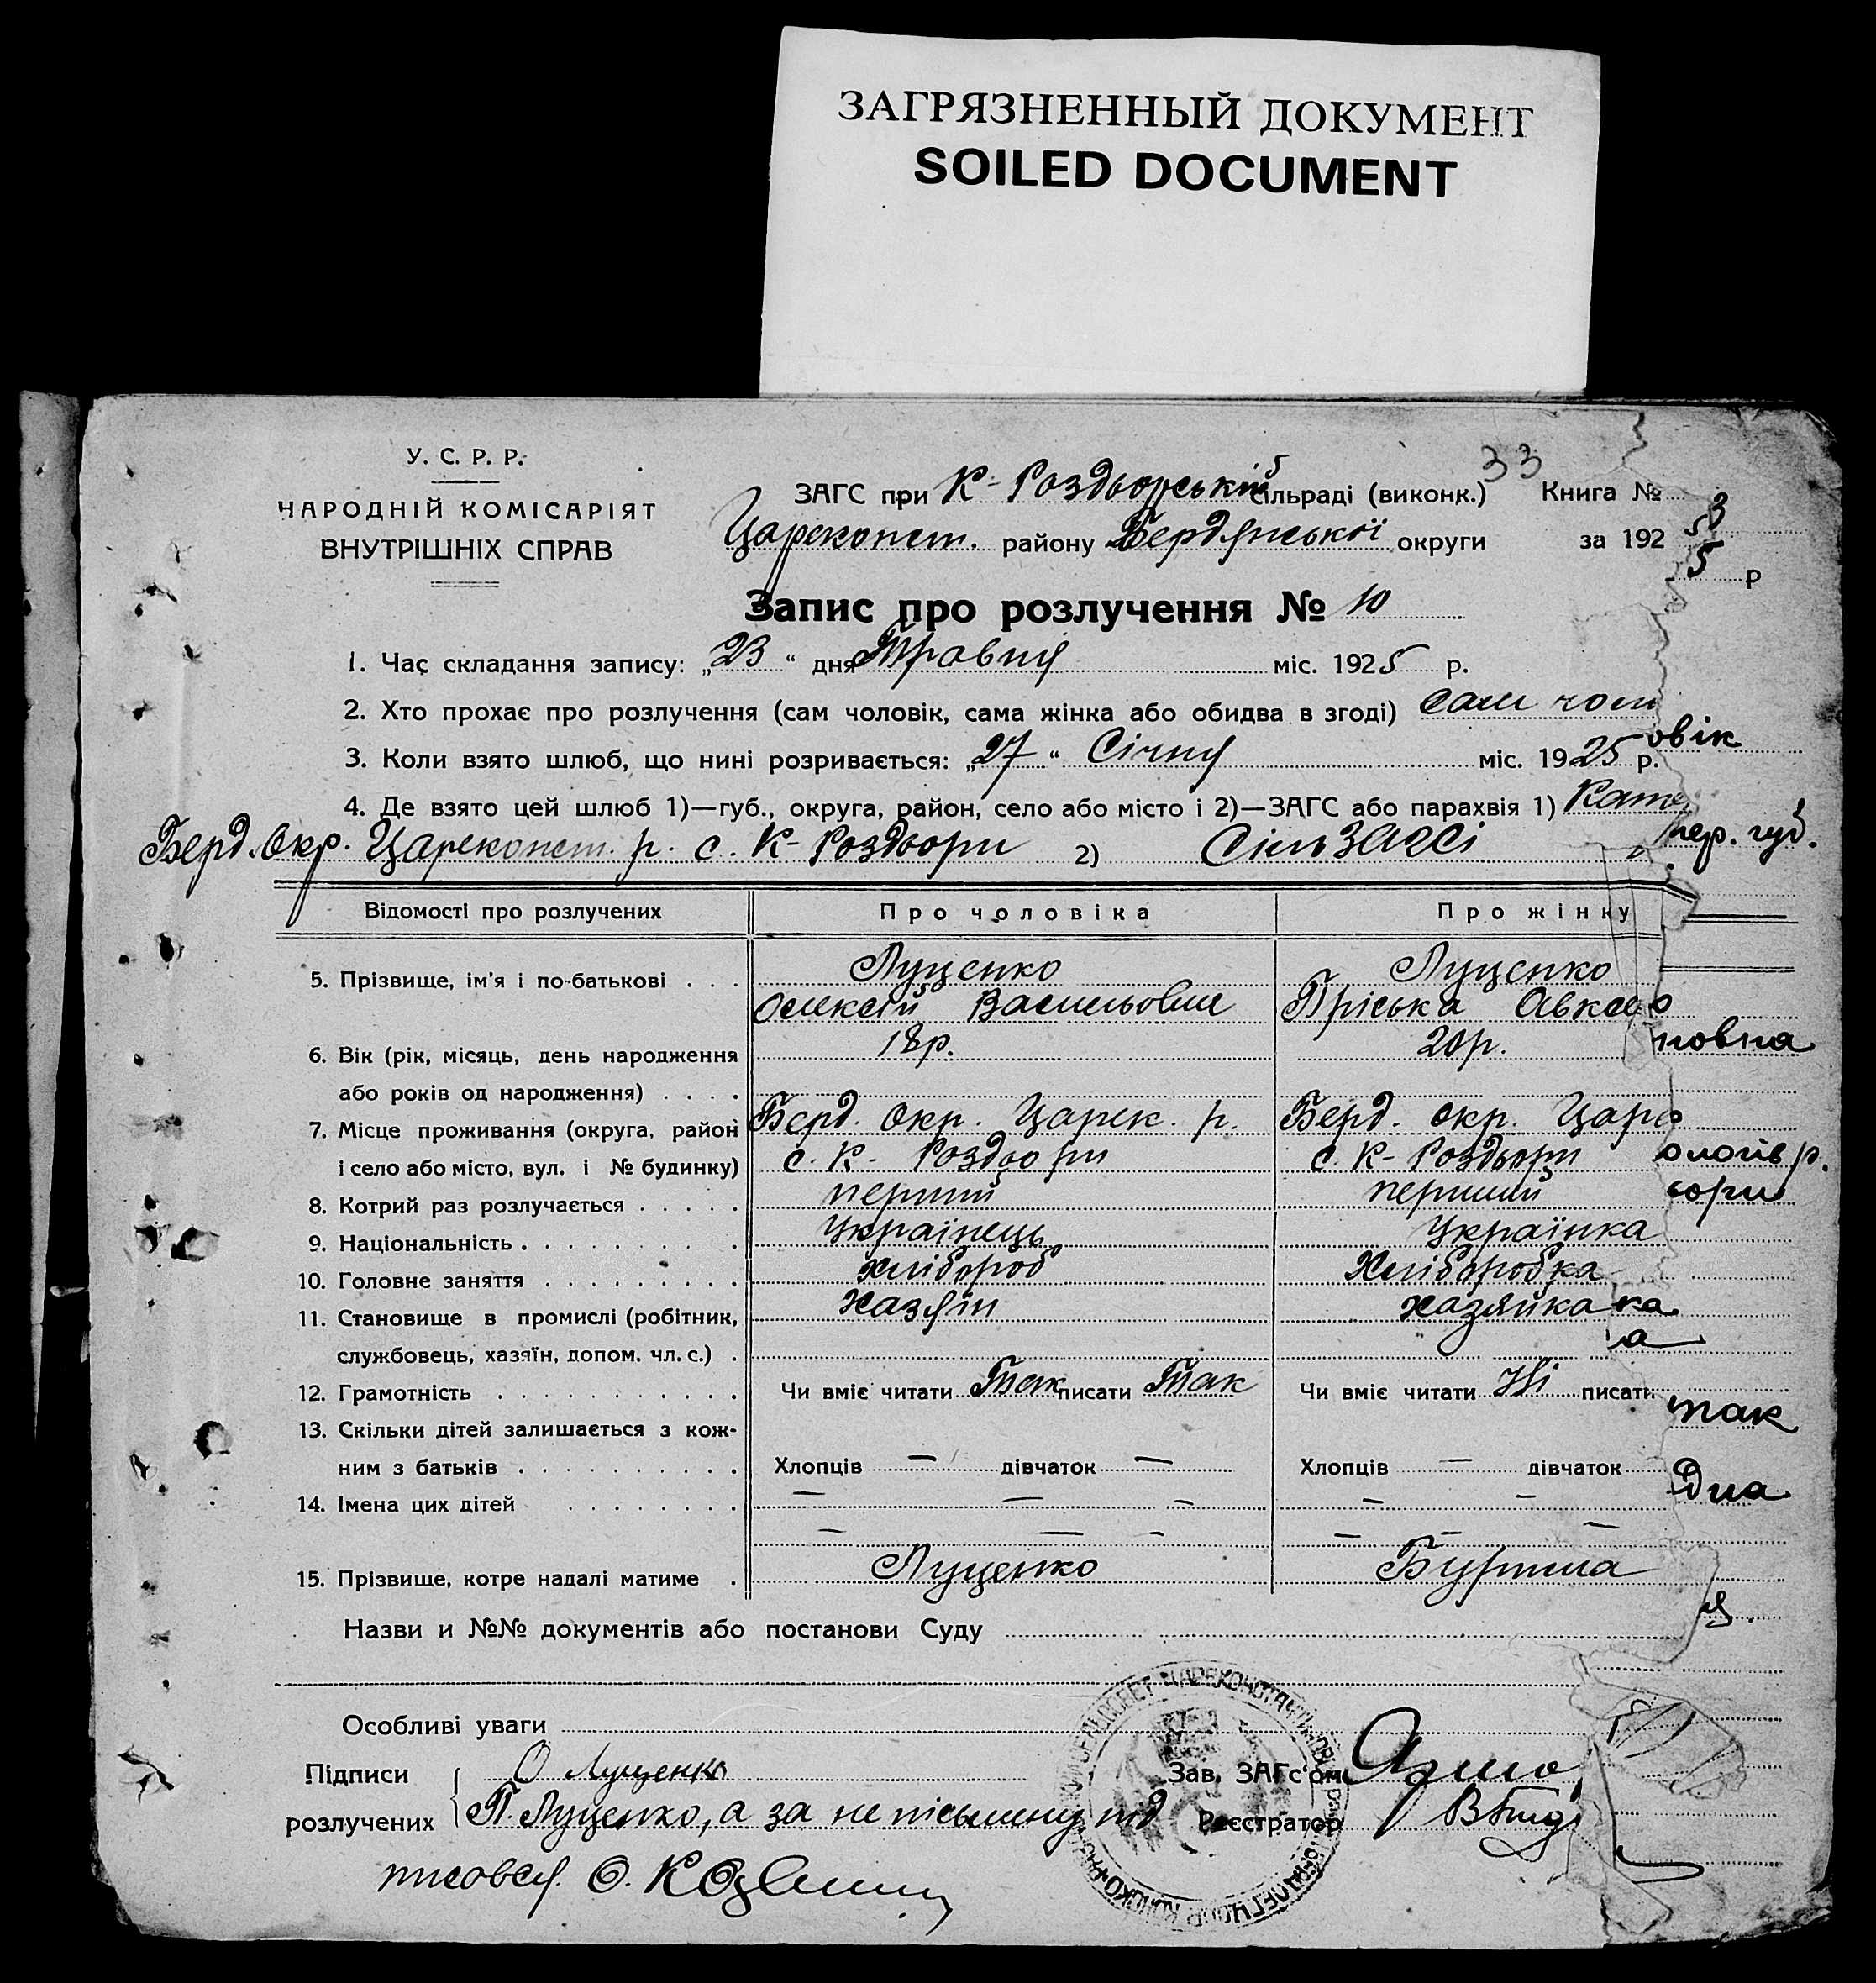 ЗАГРЯЗНЕННЫЙ ДОКУМЕНТ
SOILED DOCUMENT
33
У. С. Р. Р.
НАРОДНІЙ КОМІСАРІЯТ
ВНУТРІШНІХ СПРАВ
ЗАГС при К-Роздьорський сільраді (виконк.) Книга №
Цареконст. району Бердянської округи за 192
3
5
5 р
Запис про розлучення № 10
1. Час складання запису: „23“ дня Травня міс. 1925 р.
2. Хто прохає про розлучення (сам чоловік, сама жінка або обидва в згоді) сам чол
3. Коли взято шлюб, що нині розривається: „27“ Січня міс. 1925 р.
овік
4. Де взято цей шлюб 1)—губ., округа, район, село або місто і 2)—ЗАГС або парахвія 1) Кате
Берд. Окр. Цареконст. р. с. К-Роздьори 2) СільЗАГСі
тер. губ.
Відомості про розлучених Про чоловіка Про жінку
5. Прізвище, ім'я і по-батькові . . . Луценко Луценко
Олексій Васильович Пріська Авксе
6. Вік (рік, місяць, день народження 18р. 20р.
новна
або років од народження) . . . .
7. Місце проживання (округа, район Берд. Окр. Царек. р. Берд. Окр. Царе
і село або місто, вул. і № будинку) с. К- Роздьори с. К-Роздьори
8. Котрий раз розлучається . . . . . перший перший
9. Національність . . . . . . . . Українець Українка
10. Головне заняття . . . . . . . . . Хлібороб Хліборобка
11. Становище в промислі (робітник, Хазяїн хазяйка
ка
службовець, хазяїн, допом. чл. с.) .
а
12. Грамотність . . . . . . . . . . . Чи вміє читати Так писати Так Чи вміє читати Ні писати
так
13. Скільки дітей залишається з кож-
ним з батьків . . . . . . . . . . Хлопців — дівчаток — Хлопців — дівчаток
14. Імена цих дітей . . . . . . . . — — — — —
— — — — — —
15. Прізвище, котре надалі матиме . Луценко
Назви и №№ документів або постанови Суду
Особливі уваги
Підписи О Луценко Зав. ЗАГс'ом
розлучених П. Луценко, а за неписьмену під Реєстратор
писовся О.